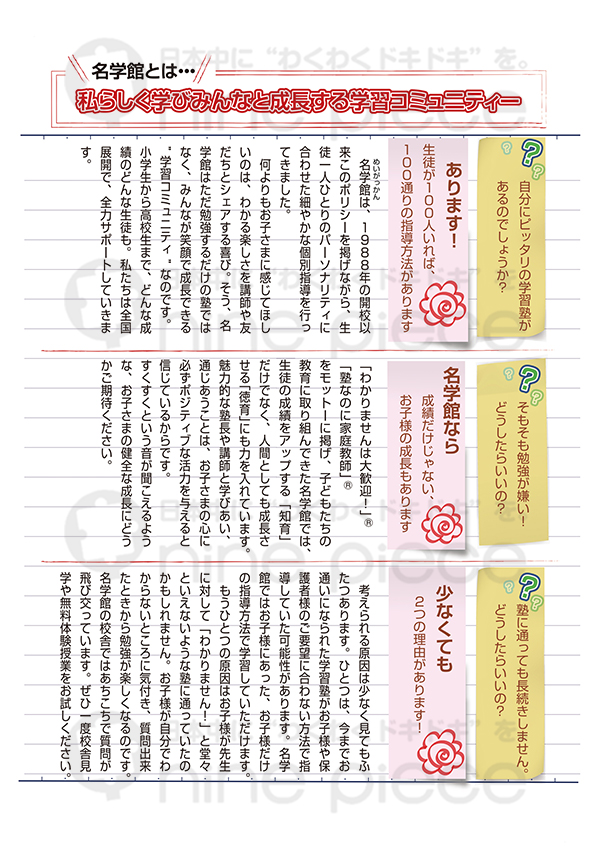 日本中に“わくわくドキドキ”を。
nine piece
名学館とは…
私らしく学びみんなと成長する学習コミュニティー
自分にピッタリの学習塾が
あるのでしょうか?
あります!
生徒が100人いれば、
100通りの指導方法があります
めいがっかん
名学館は、1988年の開校以
来このポリシーを掲げながら、生
徒一人ひとりのパーソナリティに
合わせた細やかな個別指導を行っ
てきました。
何よりもお子さまに感じてほし
いのは、わかる楽しさを講師や友
だちとシェアする喜び。そう、名
学館はただ勉強するだけの塾では
なく、みんなが笑顔で成長できる
“学習コミュニティ”なのです。
小学生から高校生まで、どんな成
績のどんな生徒も。私たちは全国
展開で、全力サポートしていきま
す。
そもそも勉強が嫌い!
どうしたらいいの?
名学館なら
成績だけじゃない、
お子様の成長もあります
「わかりませんは大歓迎!」®
「塾なのに家庭教師」®
をモットーに掲げ、子どもたちの
教育に取り組んできた名学館では、
生徒の成績をアップする「知育」
だけでなく、人間としても成長さ
せる「徳育」にも力を入れています。
魅力的な塾長や講師と学びあい、
通じあうことは、お子さまの心に
必ずポジティブな活力を与えると
信じているからです。
すくすくという音が聞こえるよう
な、お子さまの健全な成長にどう
かご期待ください。
塾に通っても長続きしません。
どうしたらいいの?
少なくても
2つの理由があります!
考えられる原因は少なく見てもふ
たつあります。ひとつは、今までお
通いになられた学習塾がお子様や保
護者様のご要望に合わない方法で指
導していた可能性があります。名学
館ではお子様にあった、お子様だけ
の指導方法で学習していただけます。
もうひとつの原因はお子様が先生
に対して「わかりません!」と堂々
といえないような塾に通っていたの
かもしれません。お子様が自分でわ
からないところに気付き、質問出来
たときから勉強が楽しくなるのです。
名学館の校舎ではあちこちで質問が
飛び交っています。ぜひ一度校舎見
学や無料体験授業をお試しください。